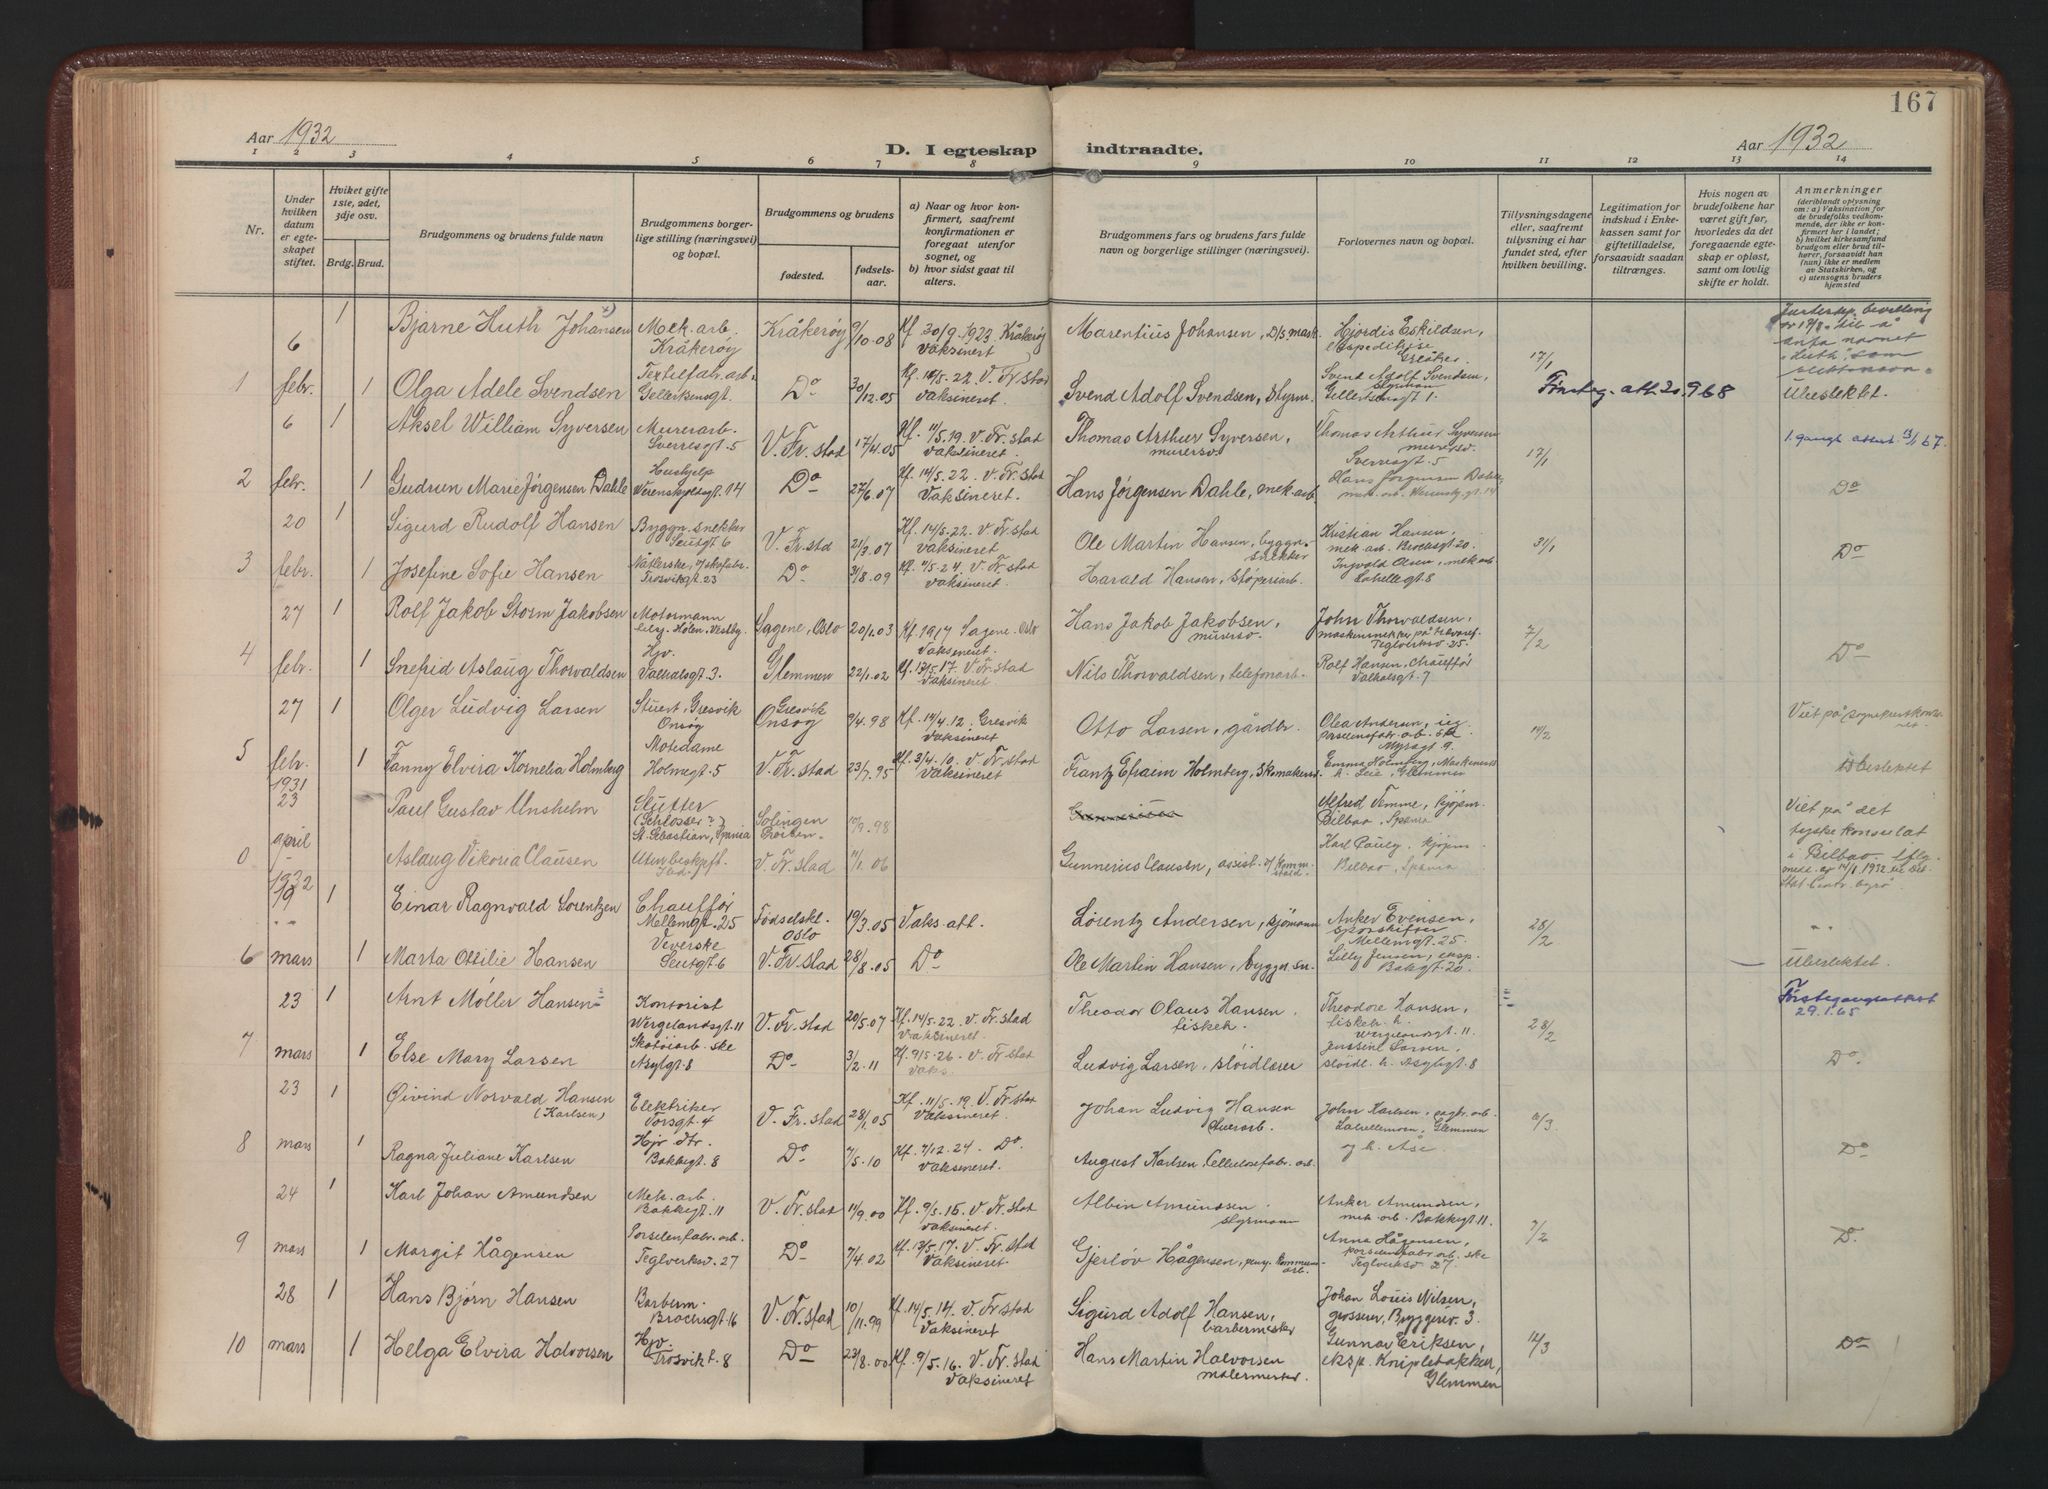 167
Aar 1932
D. I egteskap indtraadte.
Aar 1932
1 2 3 4 5 6 7 8 9 10 11 12 13 14
Nr.
Under hvilken datum er egteskapet stiftet.
Hviket gifte 1ste, 2det, 3dje osv.
Brdg. Brud.
Brudgommens og brudens fulde navn
Brudgommens borgerlige stilling (næringsvei) og bopæl.
Brudgommens og brudens
fødested.
fødselsaar.
a) Naar og hvor konfirmert, saafremt konfirmationen er foregaat utenfor sognet, og
b) hvor sidst gaat til alters.
Brudgommens fars og brudens fars fulde navn og borgerlige stillinger (næringsvei).
Forlovernes navn og bopæl.
Tillysningsdagene eller, saafremt tillysning ei har fundet sted, efter hvilken bevilling.
Legitimation for indskud i Enkekassen samt for giftetilladelse, forsaavidt saadan tiltrænges.
Hvis nogen av brudefolkene har været gift før, hvorledes da det foregaaende egteskap er opløst, samt om lovlig skifte er holdt.
Anmerkninger
(deriblandt oplysning om: a) Vaksination for de brudefolks vedkommende, der ikke er konfirmert her i landet; b) hvilket kirkesamfund brudgom eller brud tilhører, forsaavidt han (hun) ikke er medlem av Statskirken, og c) utensogns bruders hjemsted
6 1 Bjarne Huth Johansen x) Mek. arb. Kråkerøy Kråkerøy 9/10.08 Kf. 30/9.1923 Kråkerøy Vaksinert Marentius Johansen, D/S mask. Hjordis Eskildsen, ekspeditrise Greåker. 17/1
1 febr. 1 Olga Adele Svendsen Textilfabr. arb. Gellertsensgt. Do 30/12.05 Kf. 14/5.22. V. Fr. stad Vaksineret. Svend Adolf Svendsen, Styrm. Svend Adolf Svendsen, styrman 1. Førsteg. att. 20.9 68 Ubeslektet.
6 1 Aksel William Syversen Murerarb. Sverresgt. 5 V. Fr. stad 17/4.05 Kf. 11/5.19. V. Fr. stad Vaksineret. Thomas Arthur Syversen, murersv. Thomas Arthur Syversen murersv. Sverresgt. 5 17/1 1. gangs attest 13/1 67.
2 febr. 1 Gudrun Marie Jørgensen Dahle Hushjelp Werenskjoldsgt. 14 Do 27/6.07 Kf. 14/5.22. V. Fr. stad Vaksineret. Hans Jørgensen Dahle, mek. arb. Hans Jørgensen Dahle, mek. arb. Do
20 1 Sigurd Rudolf Hansen Byggn. snekker Seutgt 6 V. Fr. std 21/3.07 Kf. 14/5.22. V. Fr. stad Vaksineret Ole Martin Hansen, byggn. snekker Kristian Hansen, mek. arb. Brochsgt. 20. 31/1
3 febr. 1 Josefine Sofie Hansen Nåtlerske, Trosvikgt. 23 Do 31/8.09 V. Fr. stad Vaksineret Harald Hansen, støperiarb. Ingvald Olsen, mek. arb. 8 Do
27 1 Rolf Jakob Storm Jakobsen Motormann Hølen, Vestby. Sagene, Oslo 20/1.03 Kf. 1917 Sagene, Oslo Vaksineret. Hans Jakob Jakobsen, murersv. John Thorvaldsen, Teglverksv. 25. 7/2
4 febr. 1 Snefrid Aslaug Thorvaldsen Hjv. Valhalsgt. 3. Glemmen 22/1.02 Kf. 13/5.17. V. Fr. stad Vaksineret. Nils Thorvaldsen, telefonarb. Rolf Hansen, Chauffør Valhalsgt. 7 Do
27 1 Olger Ludvig Larsen Stuert, Gresvik Onsøy Gresvik Onsøy 9/4.98 Kf. 14/4.12. Gresvik Vaksineret Otto Larsen, gårdbr. Olea Andersen, porselensfabr. arb. Myrsgt 9. 14/2 Viet på
5 febr. 1 Fanny Elvira Kornelia Holmberg Motedame Holmegt. 5 V. Fr. stad 23/7.95 Kf. 3/4.10. V. Fr. stad Vaksineret. Frantz Efraim Holmberg, Skomakersv. Emma Holmberg, Glemmen Ubeslektet
1931
23 Paul Gustav Unshelm Slutter (Schlosser?) St. Sebastian, Spania Solingen 10/9.98 Alfred Temme, kjøpm. Bilbao, Spania Viet på det tyske konsulat
0 april Aslaug Vikoria Clausen V. Fr. stad 11/1.06 Gunnerius Clausen, assist. Karl Pauly, kjøpm. Bilbao, Spania i Bilbao. Iflg. 14/1 1932
1932
19 1 Einar Ragnvald Lorentzen Chauffør Mellemgt. 25 Fødselskl. Oslo 19/3.05 Vaks. att. Lorentz Andersen, sjømann Anker Evensen, sporskifter Mellemgt. 25. 28/2
6 mars 1 Marta Ottilie Hansen Veverske Seutgt. 6 V. Fr. stad 28/8.05 Do Ole Martin Hansen, byggn. sn. Lilly Jensen, eksp. Bakgt. 20. Ubeslektet.
23 1 Arnt Møller Hansen Kontorist Wergelandsgt. 11 V. Fr. stad 20/5.07 Kf. 14/5.22. V. Fr. stad Vaksineret Theodor Olaus Hansen fiskeh. Theodore Hansen, fiskeh. h. Wergelandsgt. 11. 28/2 Førstegangsattest 29.1.65
7 mars 1 Else Mary Larsen Skotøiarb. ske Asylgt. 8 Do 3/2.11 Kf. 9/5.26. V. Fr. stad Vaks. Ludvig Larsen, sløidlærer Larsen, sløidl. h. Asylgt. 8 Do.
23 1 Øivind Norvald Hansen (Karlsen) Elektriker Torsgt. 4 V. Fr. stad 28/1.05 Kf. 11/5.19. V. Fr. stad Vaksineret Johan Ludvig Hansen John Karlsen, Glemmen 6/3
8 mars 1 Ragna Juliane Karlsen Hjv. dtr. Bakkegt. 8 Do 7/5.10 Kf. 7/12.24. Do Vaksineret. August Karlsen, Cellulosefabr. arb. og h. Åse Do
24 1 Karl Johan Amundsen Mek. arb. Bakkegt. 11 V. Fr. stad 11/9.00 Kf. 9/5.15. V. Fr. stad Vaksineret. Albin Amundsen styrmann Anker Amundsen, mek. arb. Bakkegt 11. 7/2
9 mars 1 Margit Hågensen Porselenfabr. arb. Teglverksv. 27 Do 7/4.02 Kf. 13/5.17. V. Fr. stad Vaksineret. Gjerløv Hågensen, Kommunearb. Anna Hågensen, porselensfabr. arb. ske Teglverksv 27. Do
28 1 Hans Bjørn Hansen Barberm. Brochsgt. 16 V. Fr. stad 10/11.99 Kf. 14/5.14. V. Fr. stad Vaksineret Sigurd Adolf Hansen, barbermester Johan Louis Nilsen, grosserer, Bryggeriv. 3.
10 mars 1 Helga Elvira Halvorsen Hjv. Trosvikt. 8 Do 23/8.00 Kf. 9/5.16. V. Fr. stad Vaksineret Hans Martin Halvorsen malermester Gunnar Eriksen, eksp. Kniplebakken, Glemmen 14/3 Do